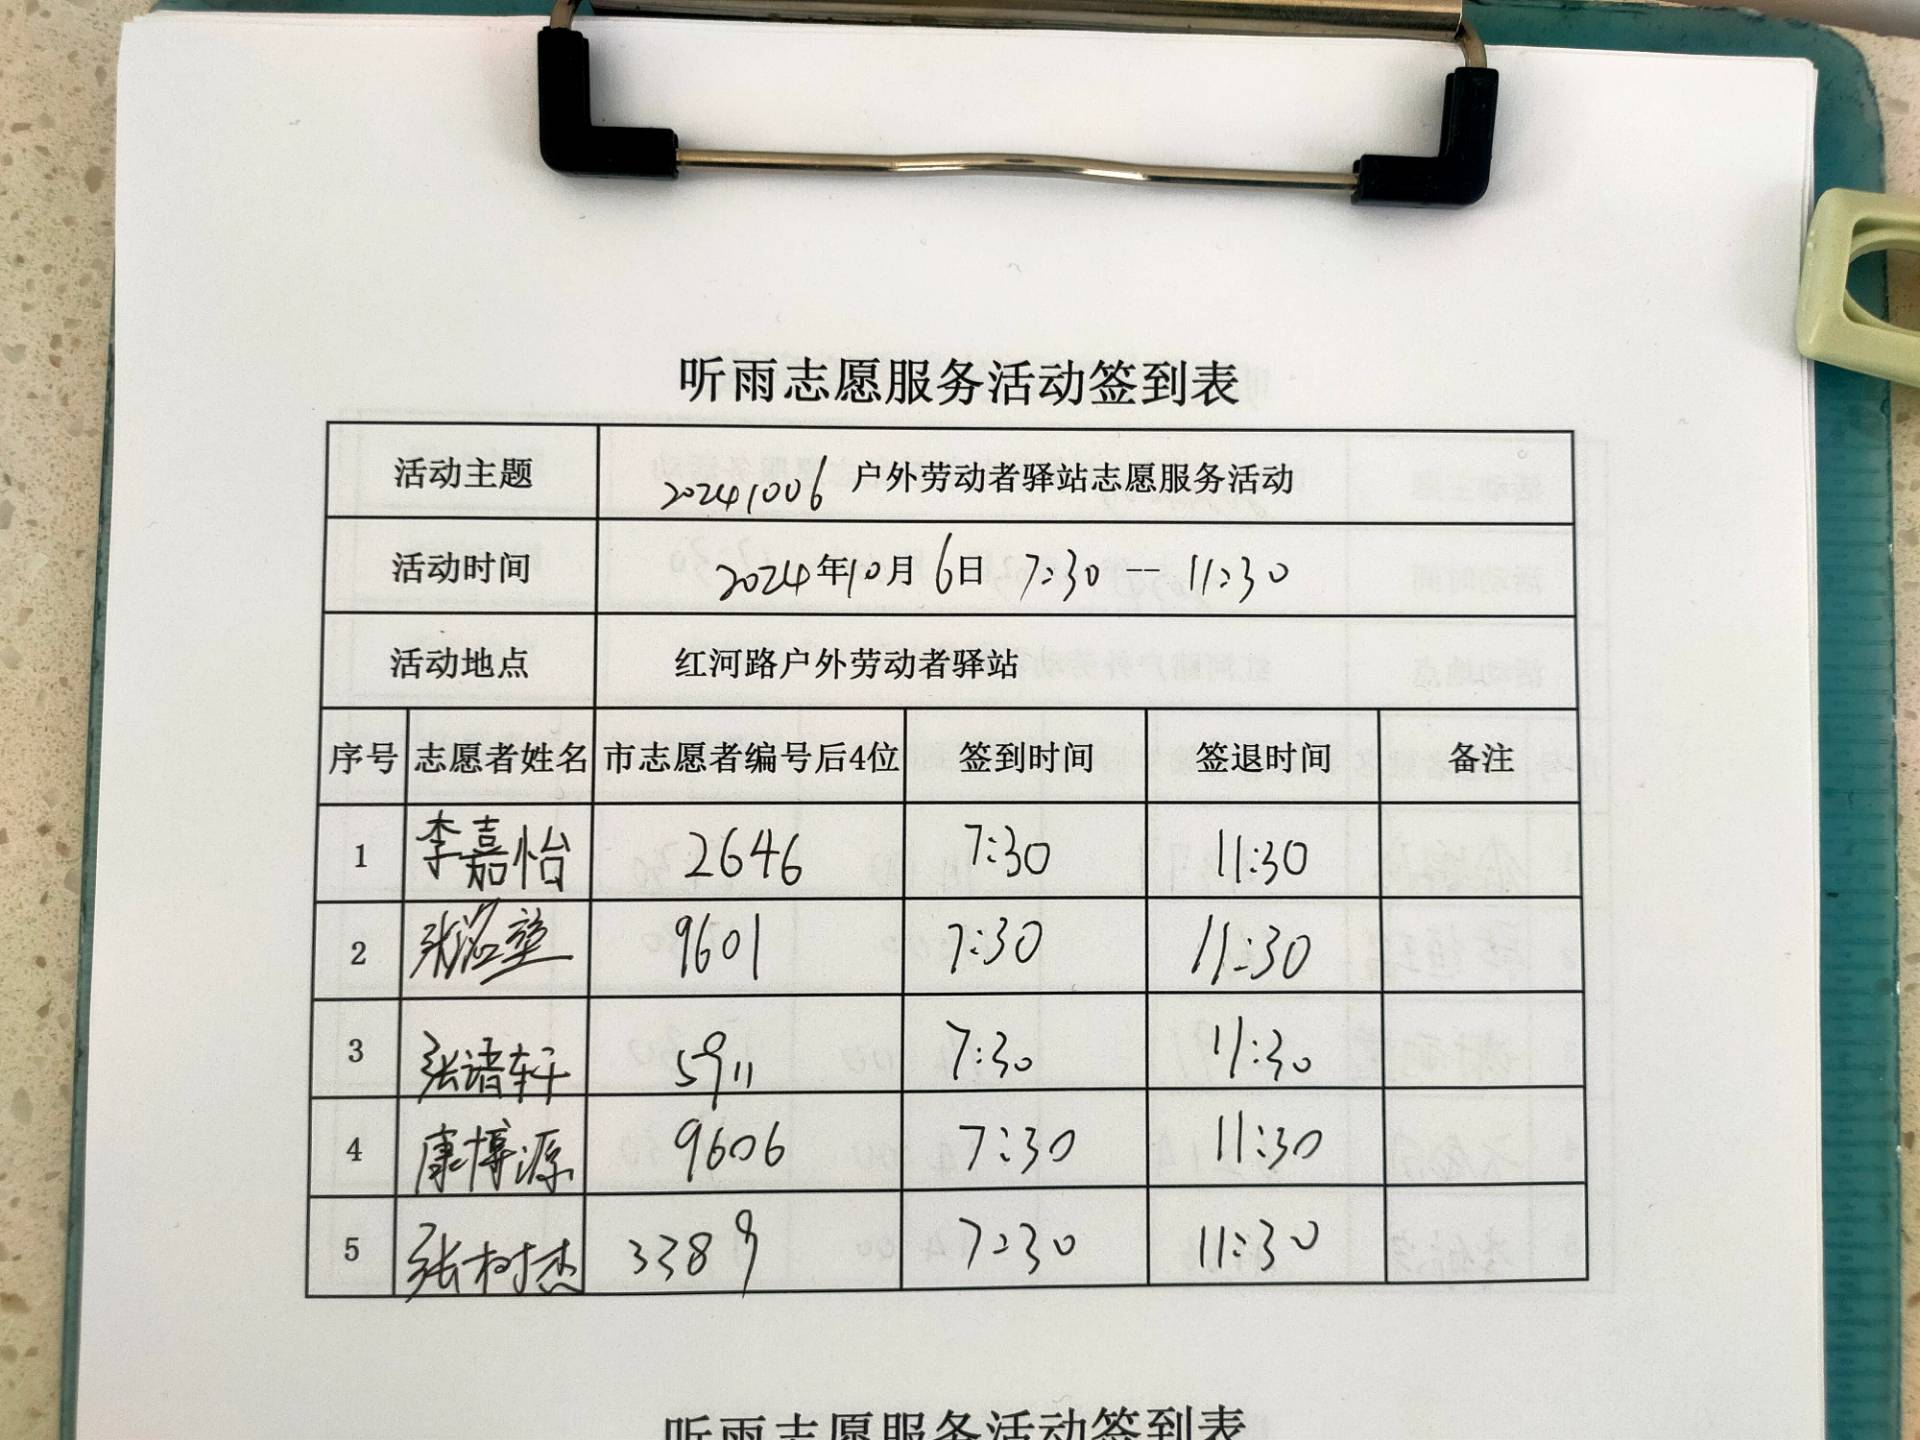 听雨志愿服务活动签到表
活动主题 20241006 户外劳动者驿站志愿服务活动
活动时间 2024年10月6日 7:30 -- 11:30
活动地点 红河路户外劳动者驿站
序号 志愿者姓名 市志愿者编号后4位 签到时间 签退时间 备注
1 李嘉怡 2646 7:30 11:30
2 张 9601 7:30 11:30
3 张诸轩 5911 7:30 11:30
4 康博源 9606 7:30 11:30
5 张树杰 3389 7:30 11:30
听雨志愿服务活动签到表